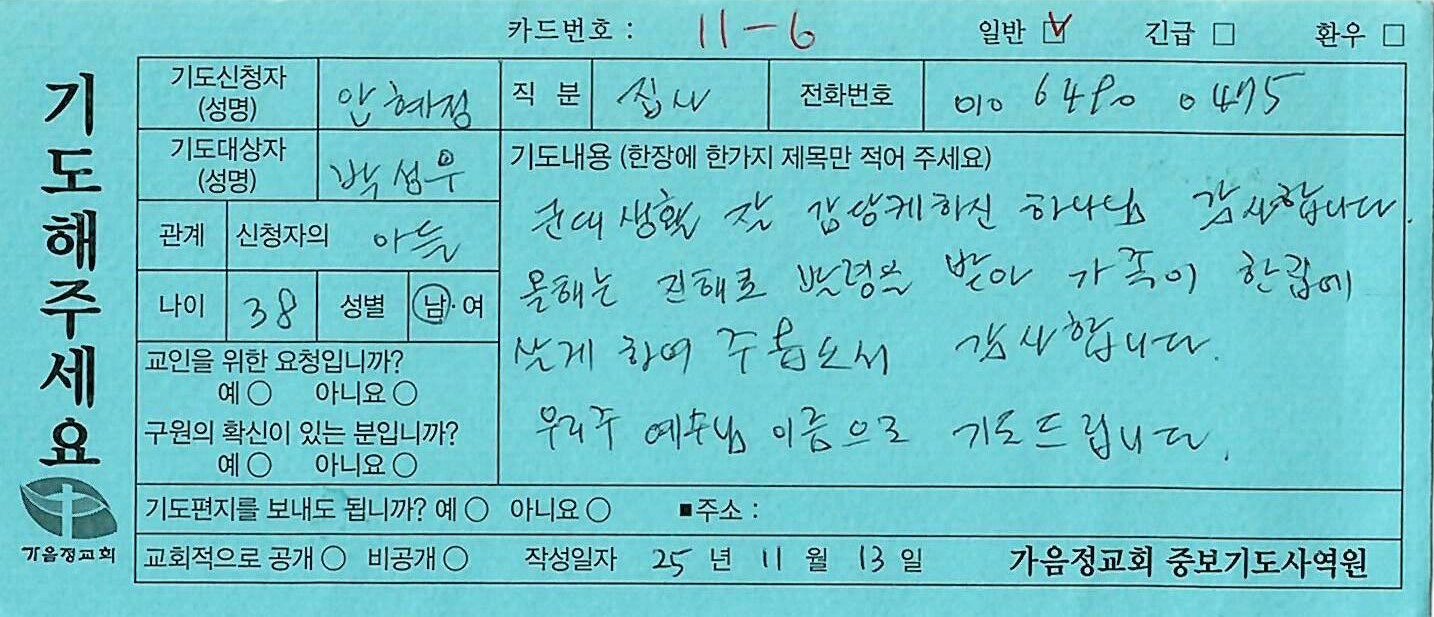 카드번호 : 11-6 일반 ☑ 긴급 □ 환우 □
기도해주세요
가음정교회
기도신청자 (성명) 안혜정 직 분 집사 전화번호 010 6480 0475
기도대상자 (성명) 박성우
관계 신청자의 아들
나이 38 성별 남·여
교인을 위한 요청입니까?
예 ○ 아니요 ○
구원의 확신이 있는 분입니까?
예 ○ 아니요 ○
기도내용 (한장에 한가지 제목만 적어 주세요)
군대 생활 잘 감당케하신 하나님 감사합니다.
올해는 진해로 발령을 받아 가족이 한집에
살게 하여 주옵소서 감사합니다.
우리주 예수님 이름으로 기도드립니다.
기도편지를 보내도 됩니까? 예 ○ 아니요 ○ ■주소 :
교회적으로 공개 ○ 비공개 ○ 작성일자 25 년 11 월 13 일 가음정교회 중보기도사역원